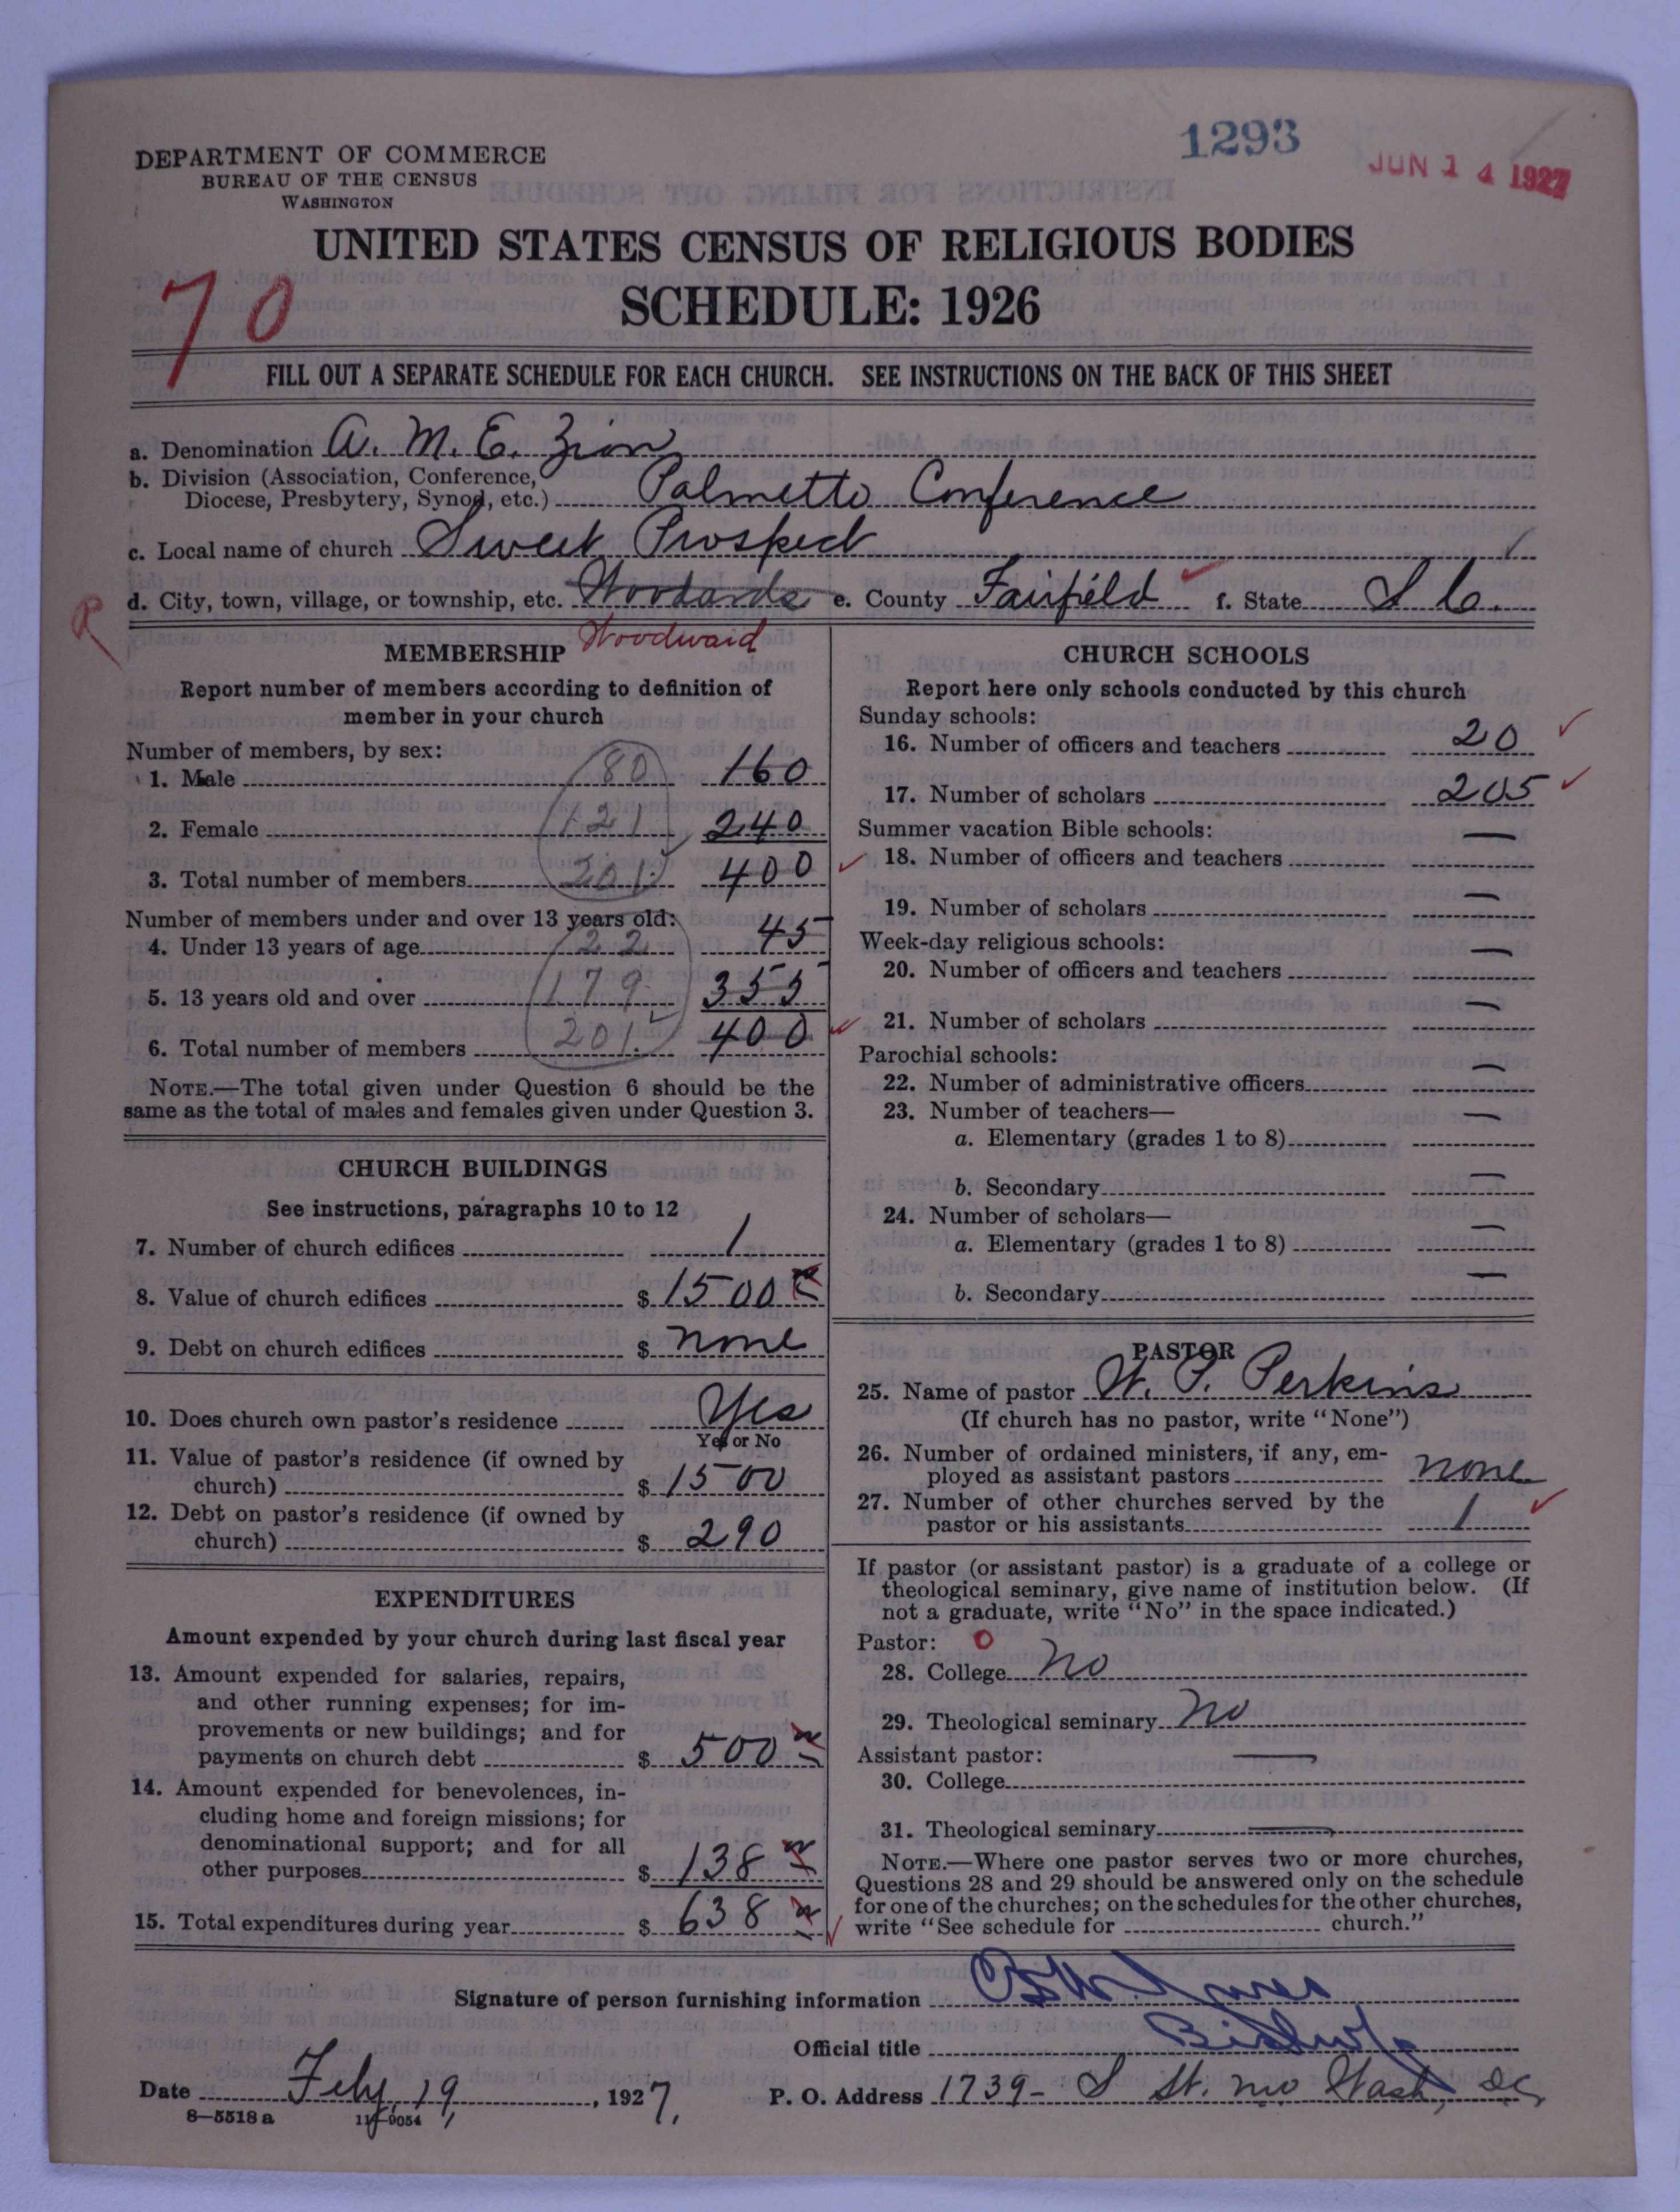 1293
JUN 14 1927
DEPARTMENT OF COMMERCE
BUREAU OF THE CENSUS
WASHINGTON
UNITED STATES CENSUS OF RELIGIOUS BODIES
SCHEDULE: 1926
70
FILL OUT A SEPARATE SCHEDULE FOR EACH CHURCH. SEE INSTRUCTIONS ON THE BACK OF THIS SHEET
a. Denomination A. M. E. Zion
b. Division (Association, Conference, Diocese, Presbytery, Synod, etc.) Palmetto Conference
c. Local name of church Sweet Prospect
R
d. City, town, village, or township, etc. Woodards e. County Fairfield f. State S C.
Woodward
MEMBERSHIP
Report number of members according to definition of
member in your church
Number of members, by sex:
1. Male 80 160
2. Female 121 240
3. Total number of members 201 400
Number of members under and over 13 years old:
4. Under 13 years of age 22 45
5. 13 years old and over 179 355
6. Total number of members 201 400
NOTE.—The total given under Question 6 should be the
same as the total of males and females given under Question 3.
CHURCH BUILDINGS
See instructions, paragraphs 10 to 12
7. Number of church edifices 1
8. Value of church edifices $ 1500
9. Debt on church edifices $ none
10. Does church own pastor's residence Yes
Yes or No
11. Value of pastor's residence (if owned by
church) $ 1500
12. Debt on pastor's residence (if owned by
church) $ 290
EXPENDITURES
Amount expended by your church during last fiscal year
13. Amount expended for salaries, repairs,
and other running expenses; for im-
provements or new buildings; and for
payments on church debt $ 500
14. Amount expended for benevolences, in-
cluding home and foreign missions; for
denominational support; and for all
other purposes $ 138
15. Total expenditures during year $ 638
CHURCH SCHOOLS
Report here only schools conducted by this church
Sunday schools:
16. Number of officers and teachers 20
17. Number of scholars 205
Summer vacation Bible schools:
18. Number of officers and teachers —
19. Number of scholars —
Week-day religious schools:
20. Number of officers and teachers —
21. Number of scholars —
Parochial schools:
22. Number of administrative officers —
23. Number of teachers—
a. Elementary (grades 1 to 8) —
b. Secondary —
24. Number of scholars—
a. Elementary (grades 1 to 8) —
b. Secondary —
PASTOR
25. Name of pastor W. P. Perkins
(If church has no pastor, write "None")
26. Number of ordained ministers, if any, em-
ployed as assistant pastors none
27. Number of other churches served by the
pastor or his assistants 1
If pastor (or assistant pastor) is a graduate of a college or
theological seminary, give name of institution below. (If
not a graduate, write "No" in the space indicated.)
Pastor: 0
28. College No
29. Theological seminary No
Assistant pastor: —
30. College
31. Theological seminary —
NOTE.—Where one pastor serves two or more churches,
Questions 28 and 29 should be answered only on the schedule
for one of the churches; on the schedules for the other churches,
write "See schedule for church."
Signature of person furnishing information
Official title Bishop
Date Feby 19, 1927. P. O. Address 1739- S St. NW Wash, DC,
8—5518 a 11—9054